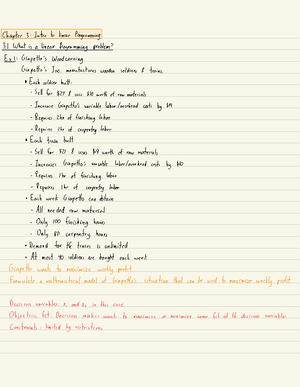 Chapter 3: Intro to Linear Programming
3.1 What is a Linear Programming problem?
Ex 1: Giapetto's Woodcarving
Giapetto's Inc. manufactures wooden soldiers & trains.
• Each soldier built:
- Sell for $27 & uses $10 worth of raw materials
- Increase Giapetto's variable labor/overhead costs by $14
- Requires 2hr of finishing labor
- Requires 1hr of carpentry labor
• Each train built
- Sell for $21 & uses $9 worth of raw materials
- Increases Giapetto's variable labor/overhead costs by $10
- Requires 1hr of finishing labor
- Requires 1hr of carpentry labor
• Each week Giapetto can obtain
- All needed raw material
- Only 100 finishing hours
- Only 80 carpentry hours
• Demand for the trains is unlimited
• At most 40 soldiers are bought each week
Giapetto wants to maximize weekly profit.
Formulate a mathematical model of Giapetto's situation that can be used to maximize weekly profit
Decision variables: x₁ and x₂ in this case
Objective fct: Decision maker wants to maximize or minimize some fct of the decision variables
Constraints: limited by restrictions